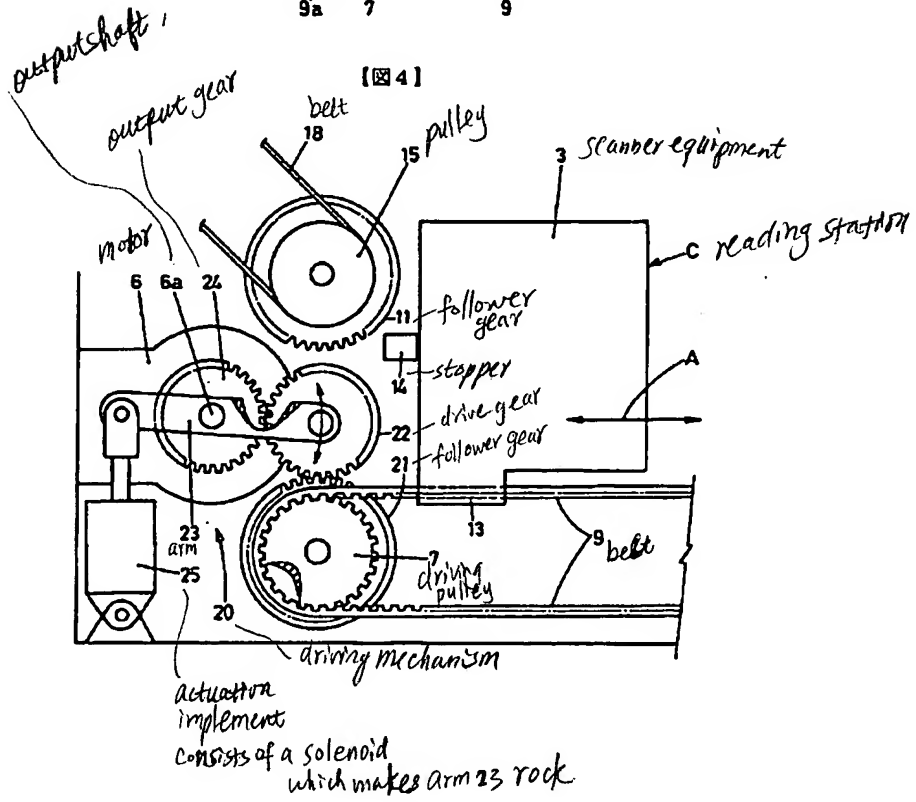 9a 7 9
outputshaft,
output gear
【図4】
belt
18
15 pulley
3 scanner equipment
C reading station
motor
6 6a 24
11 follower
gear
14 stopper
A
22 drive gear
21 follower gear
13
23
arm
25
7
driving
pulley
9 belt
20
driving mechanism
actuation
implement
consists of a solenoid
which makes arm 23 rock